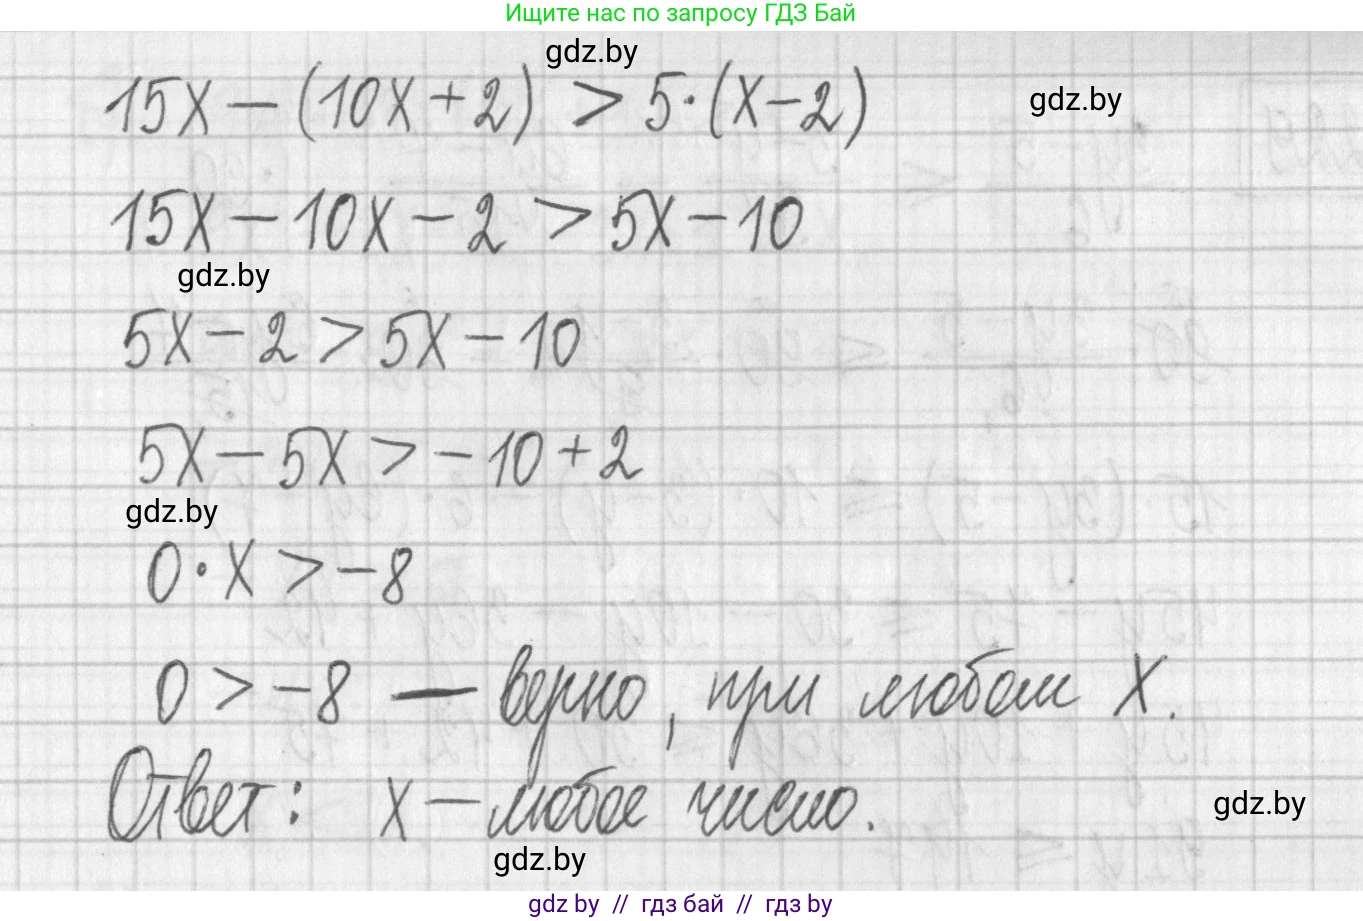 Ищите нас по запросу ГДЗ Бай
gdz.by
15x - (10x + 2) > 5·(x - 2)
gdz.by
15x - 10x - 2 > 5x - 10
gdz.by
5x - 2 > 5x - 10
5x - 5x > -10 + 2
gdz.by
0·x > -8
0 > -8 — верно, при любом x.
Ответ: x — любое число.
gdz.by
gdz.by
gdz by // гдз бай // гдз by